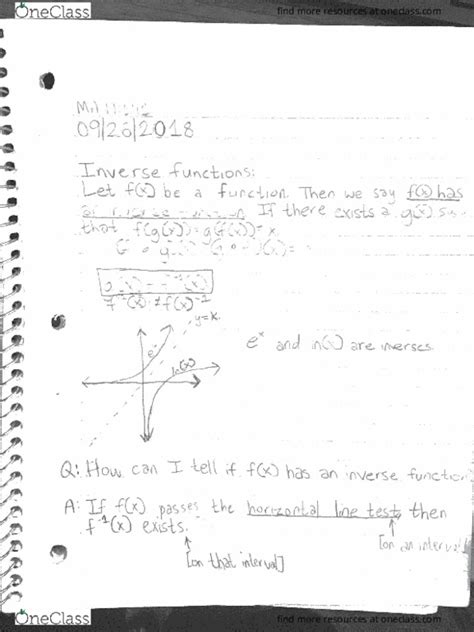 OneClass
find more resources at oneclass.com
09/26/2018
Inverse functions:
Let f(x) be a function. Then we say f(x) has
If there exists a g(x)
that f(g(x)) = g(f(x)) = x
f⁻¹(x) ≠ f(x)⁻¹
y=x
eˣ
ln(x)
eˣ and ln(x) are inverses
Q: How can I tell if f(x) has an inverse function
A: If f(x) passes the horizontal line test, then
f⁻¹(x) exists.
[on an interval]
[on that interval]
OneClass
find more resources at oneclass.com